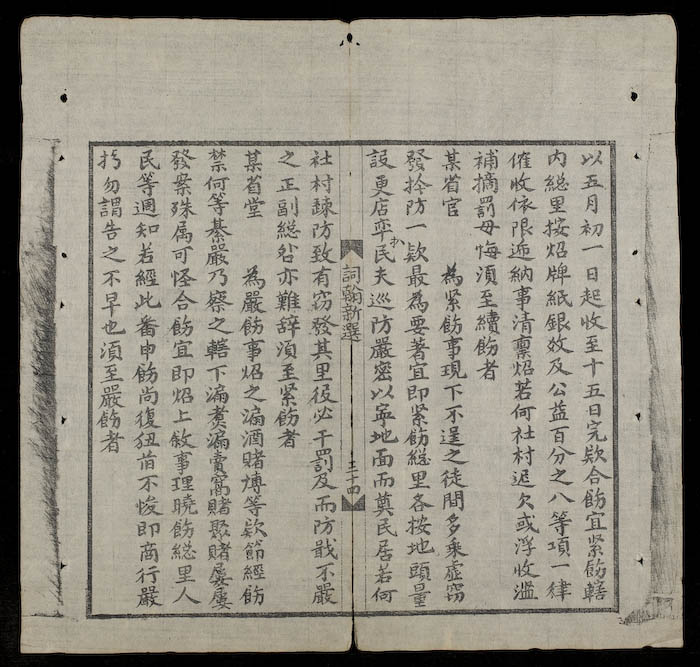 以五月初一日起收至十五日完欵合飭宜紧飭轄
内総里按炤牌紙銀效及公益百分之八等項一律
催收依限逓納事清稟炤若何社村迟欠或浮收滥
補摘罰毋悔湏至續飭者
某省官　為紧飭事現下不逞之徒間多乘虚窃
發拴防一欵最為要著宜即紧飭総里各按地頭量
設更店率民夫巡防嚴密以寧地面而奠民居若何
詞翰新選
三十四
社村疎防致有窃發其里役必干罰及而防戢不嚴
之正副総亦难辞湏至紧飭者
某省堂　為嚴飭事炤之漏酒賭博等欵節經飭
禁何等綦嚴乃察之轄下漏煑漏賣窩賭聚賭屡屡
發案殊属可怪合飭宜即炤上敘事理曉飭総里人
民等週知若經此番申飭尚復狃前不悛即商行嚴
勿謂告之不早也湏至嚴飭者